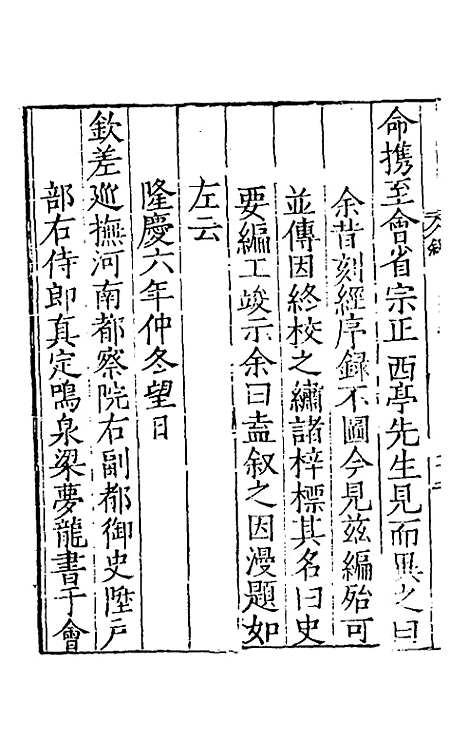 命携至會省宗正西亭先生見而異之曰
余昔刻經序録不圖今見兹編殆可
並傳因終校之繡諸梓標其名曰史
要編工竣示余曰盍叙之因漫題如
左云
隆慶六年仲冬望日
欽差廵撫河南都察院右副都御史陞戶
部右侍郎真定鳴泉梁夢龍書于會